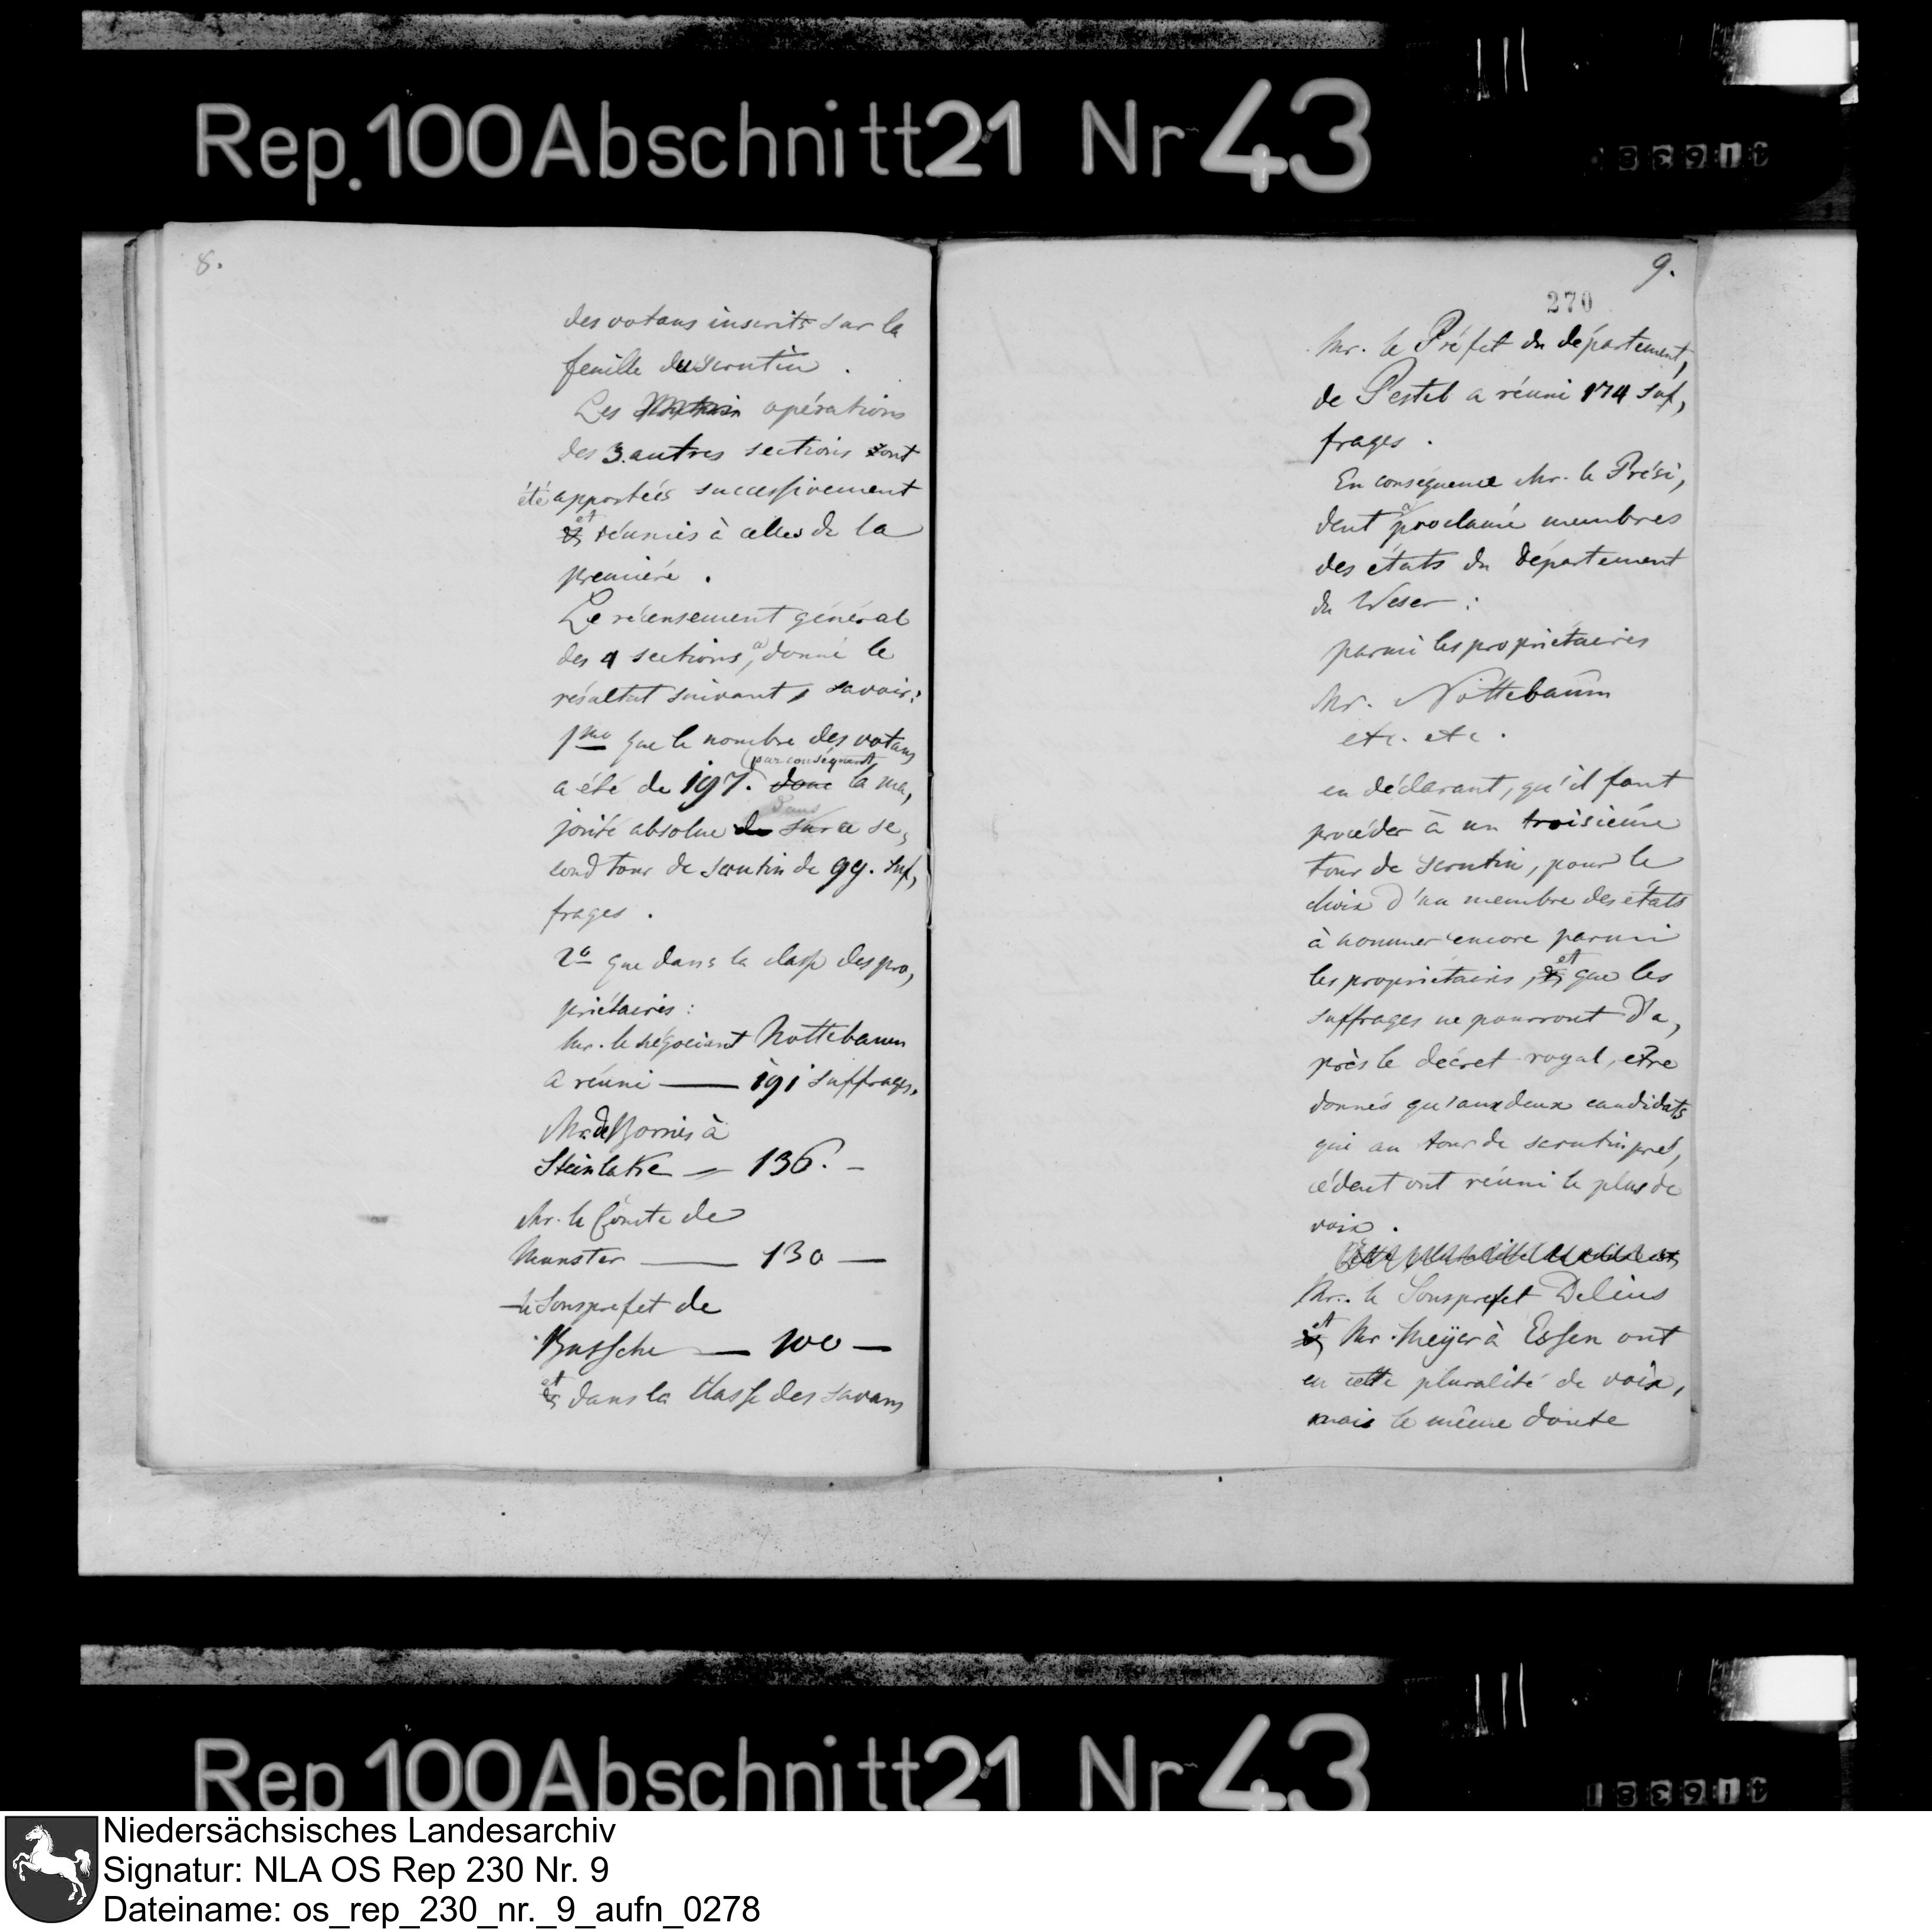 Rep. 100 Abschnitt 21 Nr 43
8.
des votans inscrits sur la
feuille du scrutin.
Les opérations
des 3. autres sections ont
été apportées successivement
et réunies à celles de la
première.
Le récensement général
des 4 sections, a donné le
résultat suivant, savoir:
1mo que le nombre des votans
(par conséquent
a été de 197. donc la ma,
dans
jorité absolue de sur ce se,
cond tour de scrutin de 99. suf,
frages.
2o que dans la classe des pro,
priétaires:
Mr. le négociant Nottebaum
a réuni — 191 suffrages.
Mr. de Borries à
Steinlake — 136. —
Mr. le Comte de
Munster — 130 —
le Sousprefet de
Bussche — 100 —
et dans la Classe des savans
9.
270
Mr. le Préfet du département,
de Pestel a réuni 174 suf,
frages.
En conséquence Mr. le Prési,
dent a proclamé membres
des états du Département
du Weser:
parmi les propriétaires
Mr. Nottebaum
etc. etc.
en déclarant, qu'il faut
procéder à un troisième
tour de scrutin, pour le
choix d'un membre des états
à nommer encore parmi
les propriétaires, et que les
suffrages ne pourront d'a,
près le décret royal, etre
donnés qu'aux deux candidats
qui au tour de scrutin pré,
cédent ont réuni le plus de
voix.
Mr. le Sousprefet Delius
et Mr. Meÿer à Essen ont
eu cette pluralité de voix,
mais le même doute
Rep 100 Abschnitt 21 Nr 43
Niedersächsisches Landesarchiv
Signatur: NLA OS Rep 230 Nr. 9
Dateiname: os_rep_230_nr._9_aufn_0278